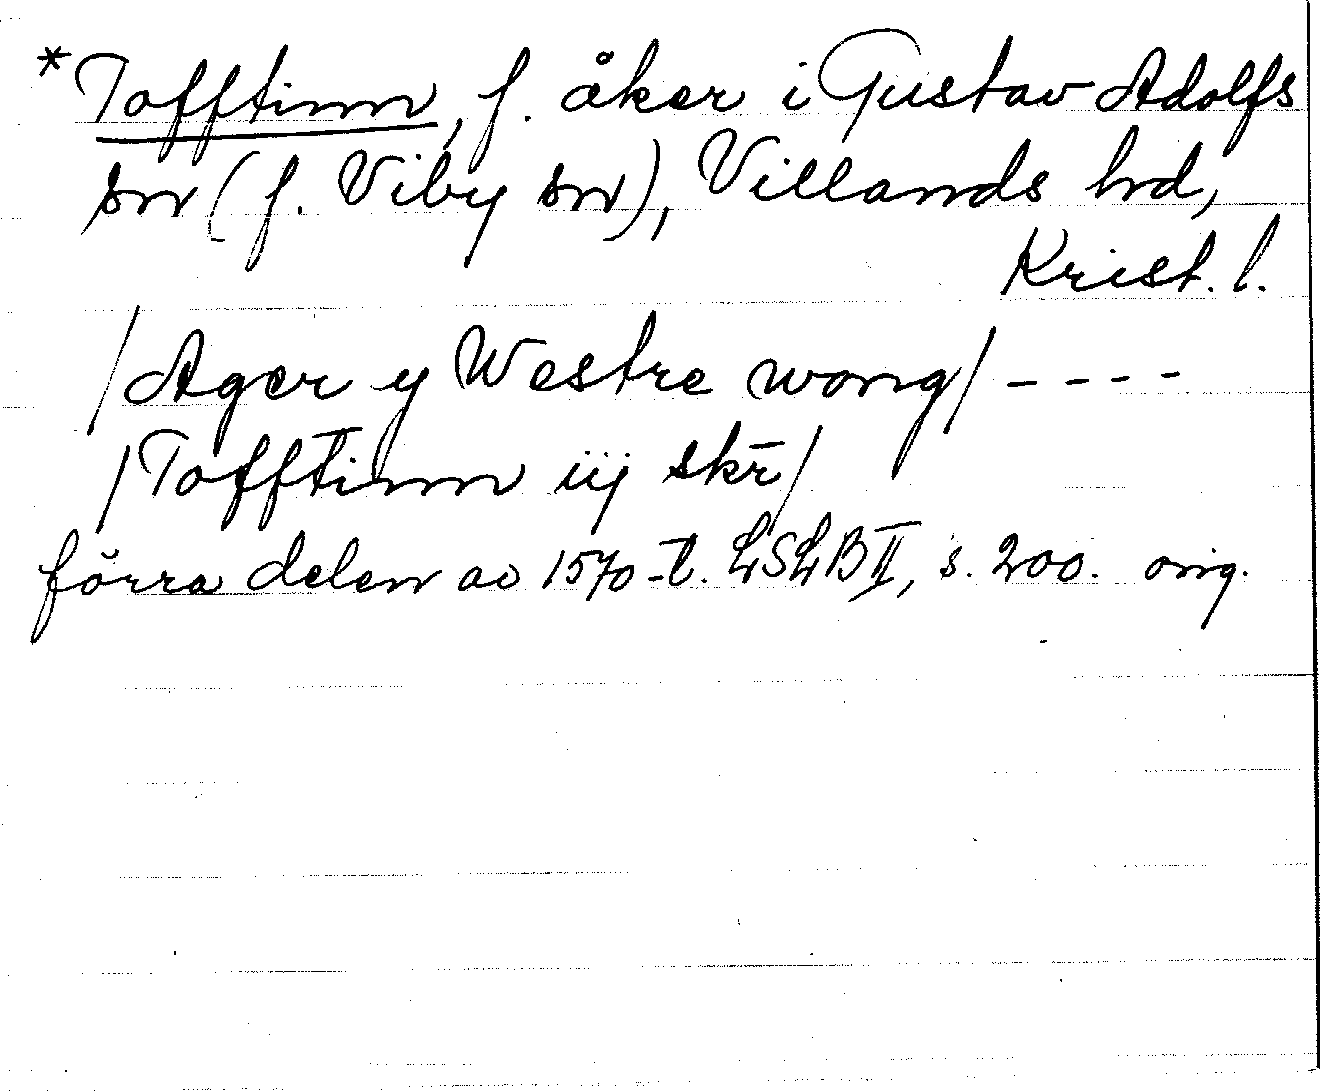 *Tofftinn, f. åker i Gustav Adolfs
sn (f. Viby sn), Villands hd,
Krist. l.
/Ager y Westre wong/ ----
/Tofftinn iij skr̄/
förra delen av 1570-t. LSLB II, s. 200. orig.